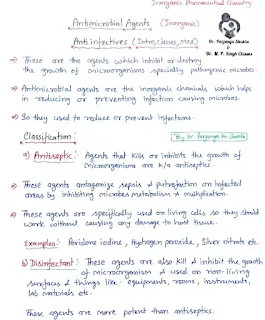 Inorganic Pharmaceutical Chemistry
Antimicrobial Agents (Inorganic)
Anti infectives (Intro, classes, MOA)
Dr. Puspendra Kr Shukla
Dr. M. P. Singh Classes
⇒ These are the agents which inhibit or destroy
the growth of microorganisms specially pathogenic microbes.
⇒ Antimicrobial agents are the inorganic chemicals, which helps
in reducing or preventing infection causing microbes.
⇒ So they used to reduce or prevent infections.
Classification:
By Dr. Puspendra Kr Shukla
a) Antiseptic: Agents that kills or inhibits the growth of
microorganisms are k/a antiseptics
⇒ These agents antagonize sepsis & putrefaction on infected
areas by inhibiting microbes metabolism & multiplication.
⇒ These agents are specifically used on living cells so they should
work without causing any damage to host tissue.
Examples: Povidone iodine, Hydrogen peroxide, Silver nitrate etc.
b) Disinfectant: These agents are also kill & inhibit the growth
of microorganism & used on non-living
surfaces & things like - equipments, rooms, instruments,
lab materials etc.
These agents are more potent than antiseptics.